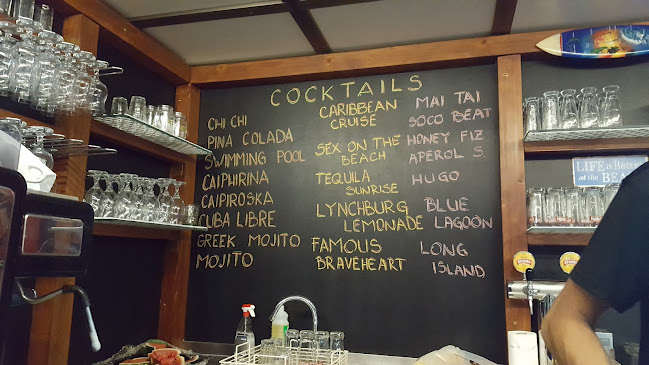 COCKTAILS
CHI CHI
PINA COLADA
SWIMMING POOL
CAIPHIRINA
CAIPIROSKA
CUBA LIBRE
GREEK MOJITO
MOJITO
CARIBBEAN
CRUISE
SEX ON THE
BEACH
TEQUILA
SUNRISE
LYNCHBURG
LEMONADE
FAMOUS
BRAVEHEART
MAI TAI
SOCO BEAT
HONEY FIZ
APEROL S.
HUGO
BLUE
LAGOON
LONG
ISLAND
LIFE is Better
at the BEA